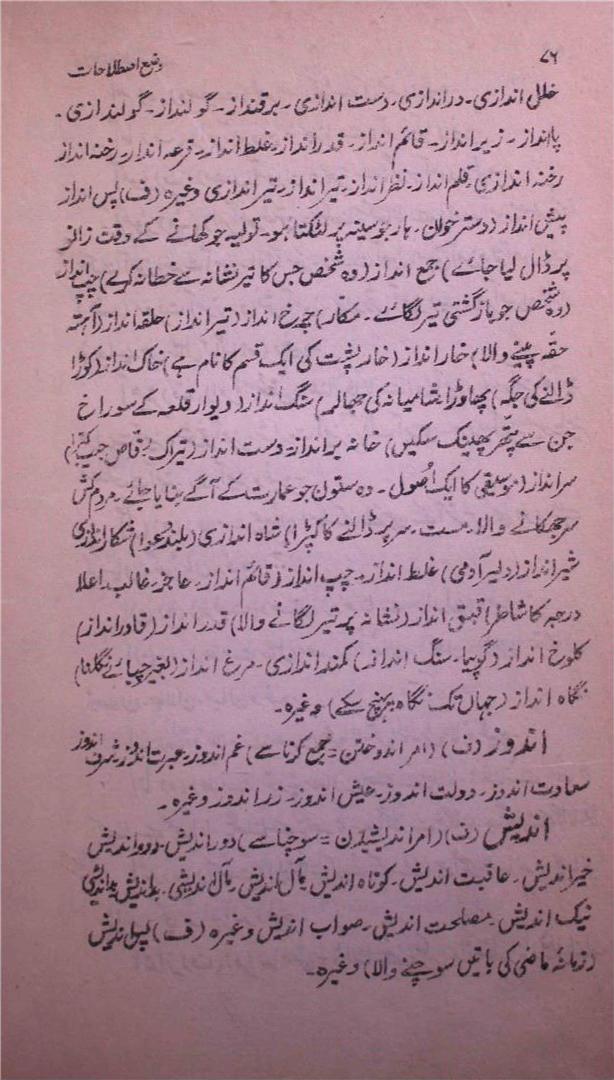 ۷۶
وضع اصطلاحات
خلل اندازی۔ دراندازی۔ دست اندازی۔ برقنداز۔ گولنداز۔ گولندازی۔
پاانداز۔ زیرانداز۔ قائم انداز۔ قدرانداز۔ غلط انداز۔ قرعہ انداز۔ رخنہ انداز
رخنہ اندازی۔ قلم انداز۔ نظرانداز۔ تیرانداز۔ تیراندازی وغیرہ (ف) پس انداز
پیش انداز (دسترخوان۔ ہار جو سینہ پر لٹکتا ہو۔ تولیہ جو کھانے کے وقت زانو
پر ڈال لیا جائے) جمع انداز (وہ شخص جس کا تیر نشانہ سے خطا نہ کرے) چپ انداز
(وہ شخص جو بازگشتی تیر لگائے۔ مکار) چرخ انداز (تیرانداز) حلقہ انداز (آہستہ
حقہ پینے والا) خارانداز (خارپشت کی ایک قسم کا نام ہے) خاک انداز (کوڑا
ڈالنے کی جگہ) پھاوڑا شامیانہ کی جھالر) سنگ انداز (دیوار قلعہ کے سوراخ
جن سے پتھر پھینک سکیں) خانہ برانداز۔ دست انداز (تیراک۔ رقاص۔ جیب کترا)
سرانداز (موسیقی کا ایک اصول۔ وہ ستون جو عمارت کے آگے بنایا جائے۔ مردم کش
سر جھکانے والا۔ مست۔ سر پر ڈالنے کا کپڑا) شاہ اندازی (بلند دعوا) شکار اندازی
شیرانداز (دلیر آدمی) غلط انداز۔ چپ انداز (قائم انداز۔ عاجز۔ غالب۔ اعلا
درجہ کا شاطر) قبق انداز (نشانہ پر تیر لگانے والا) قدرانداز (قادرانداز)
کلوخ انداز (گوپیا۔ سنگ انداز) کمنداندازی۔ مرغ انداز (بغیر چبائے نگلنا)
نگاہ انداز (جہاں تک نگاہ پہنچ سکے) وغیرہ۔
اندوز (ف) (امر اندوختن = جمع کرنا سے) غم اندوز۔ عبرت اندوز۔ شرف اندوز
سعادت اندوز۔ دولت اندوز۔ عیش اندوز۔ زراندوز وغیرہ۔
اندیش (ف) (امر اندیشیدن = سوچنا سے) دوراندیش۔ دوراندیش
خیراندیش۔ عاقبت اندیش۔ کوتاہ اندیش۔ مآل اندیش۔ مآل اندیشی۔ بداندیش۔ بداندیشی
نیک اندیش۔ مصلحت اندیش۔ صواب اندیش وغیرہ (ف) پس اندیش
(زمانہ ماضی کی باتیں سوچنے والا) وغیرہ۔